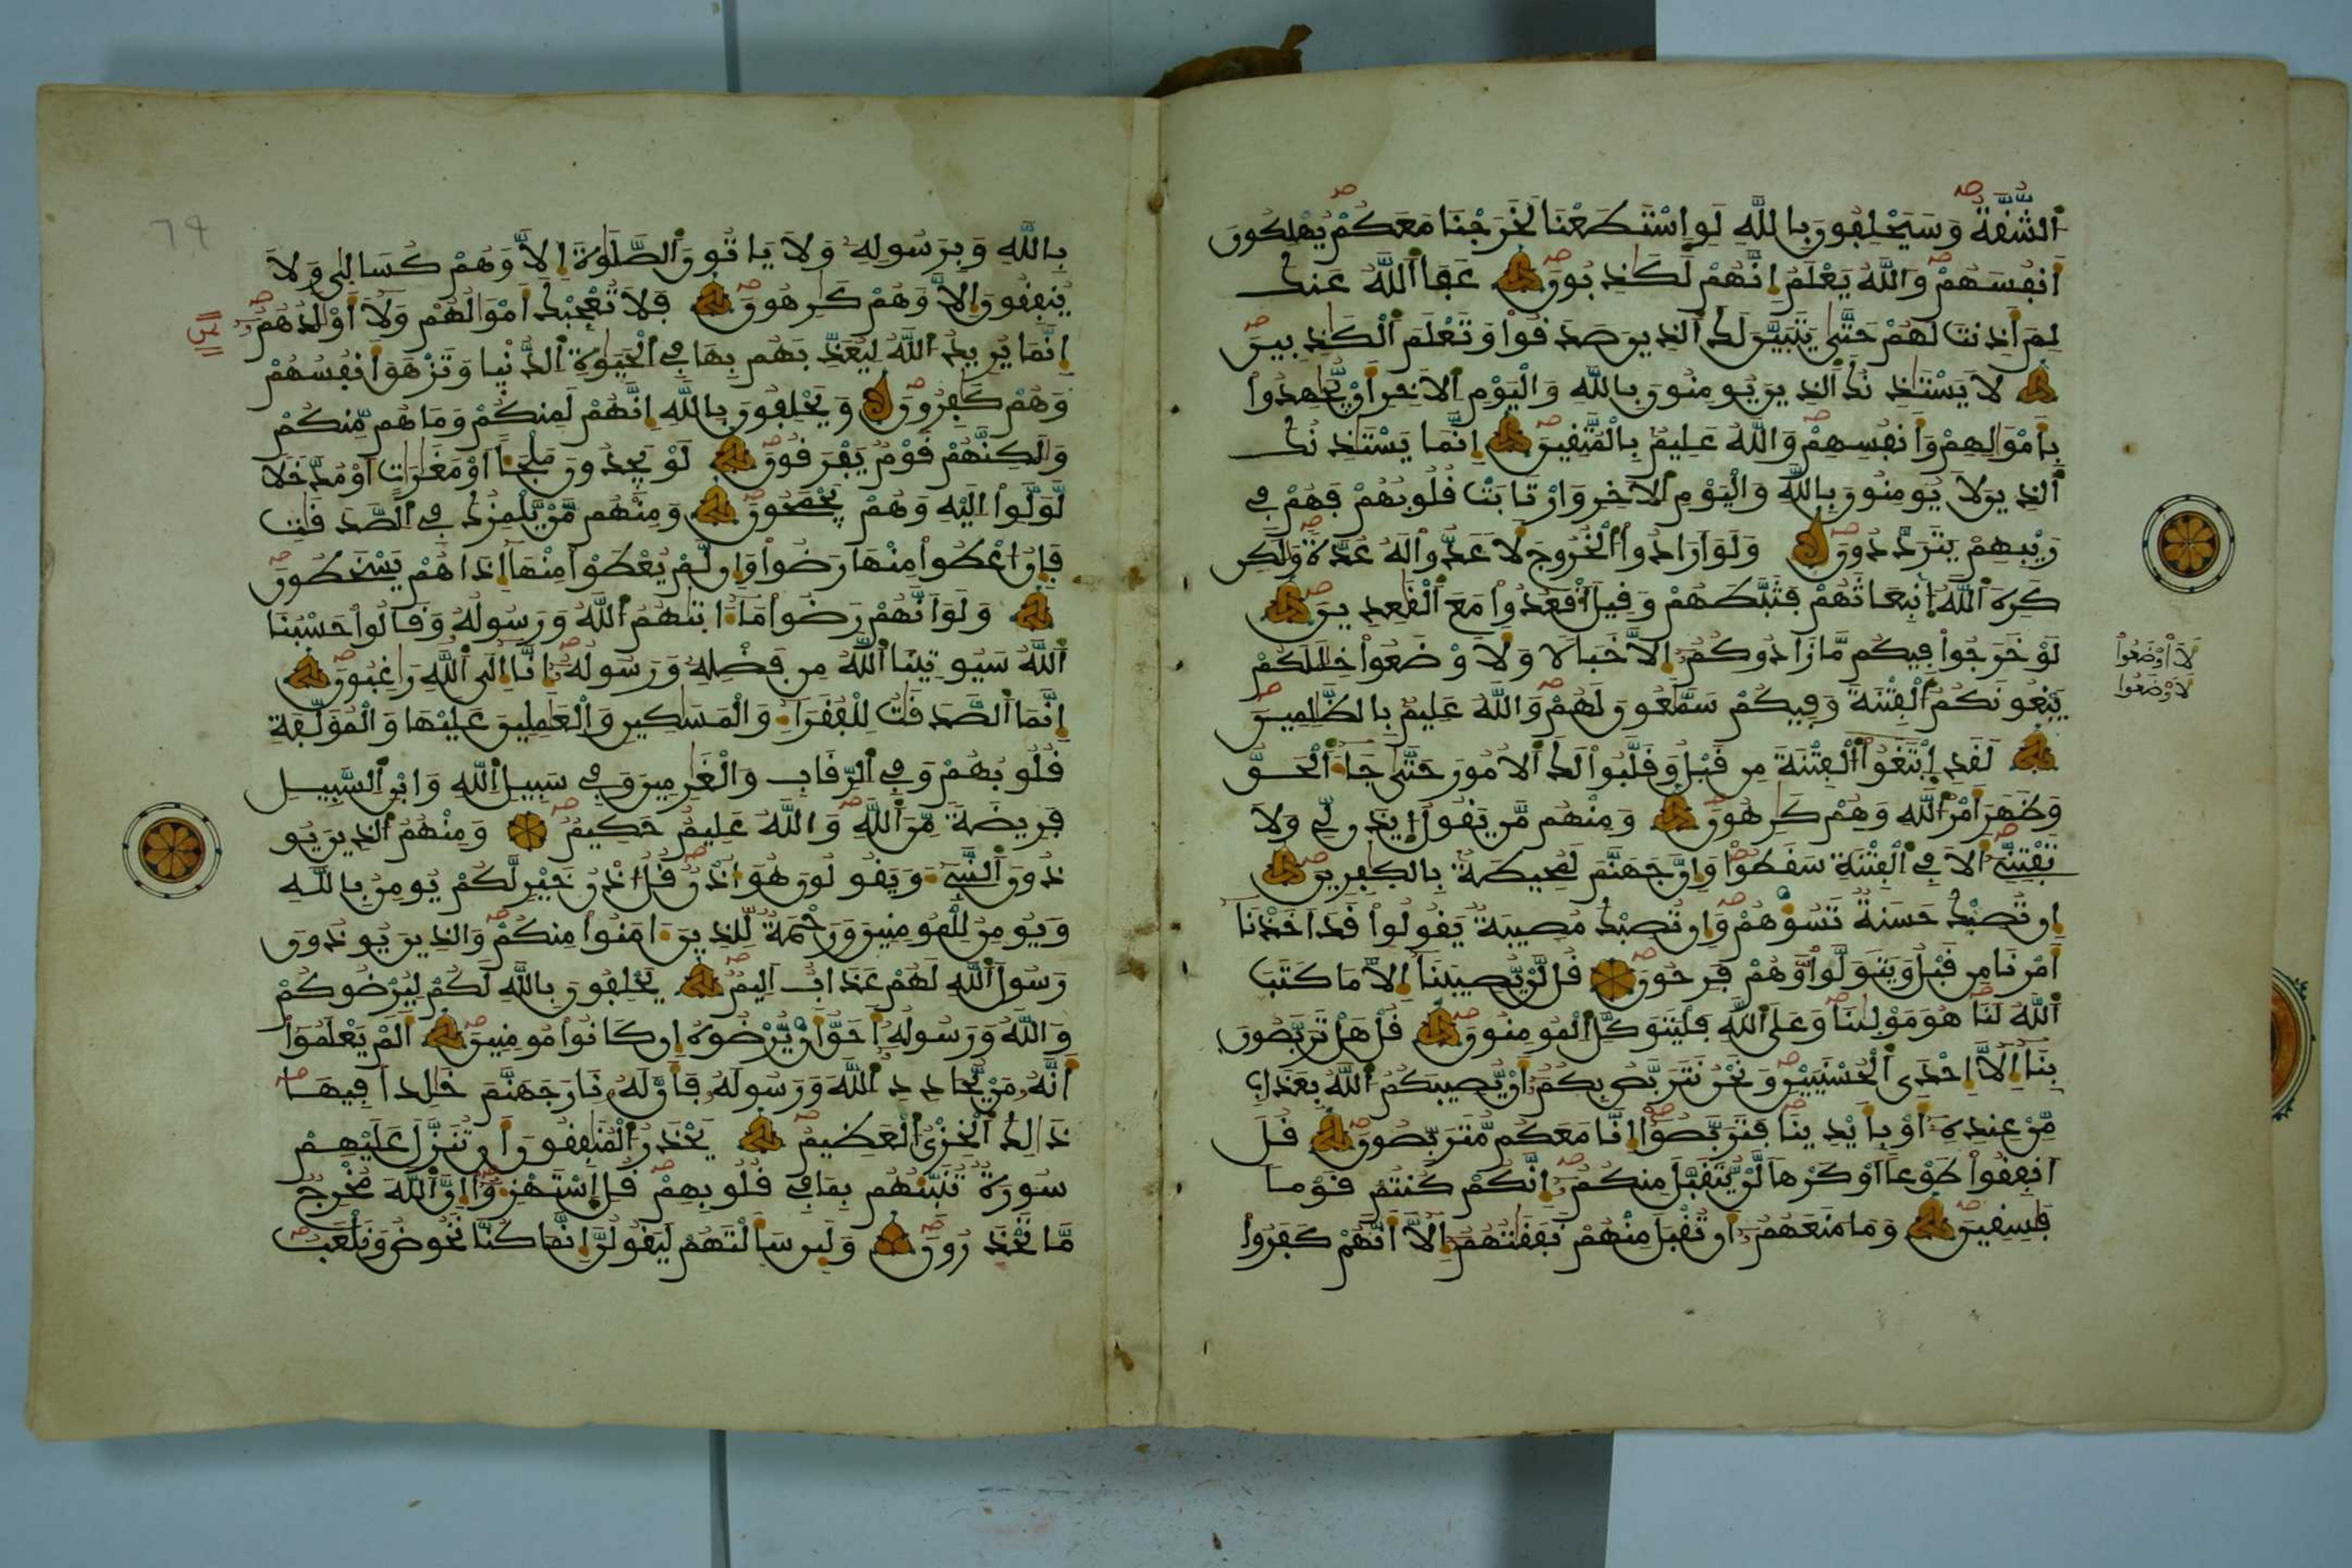 اَ۬لشُّقَّةُ وَسَيَحْلِفُونَ بِاللَّهِ لَوِ اِ۪سْتَطَعْنَا لَخَرَجْنَا مَعَكُمْ يُهْلِكُونَ
أَنفُسَهُمْ وَاللَّهُ يَعْلَمُ إِنَّهُمْ لَكَٰذِبُونَ عَفَا اَ۬للَّهُ عَنكَ
لِمَ أَذِنتَ لَهُمْ حَتَّىٰ يَتَبَيَّنَ لَكَ اَ۬لذِينَ صَدَقُواْ وَتَعْلَمَ اَ۬لْكَٰذِبِينَ
لَا يَسْتَٰذِنُكَ اَ۬لذِينَ يُومِنُونَ بِاللَّهِ وَالْيَوْمِ اِ۬لَاخِرِ أَنْ يُّجَٰهِدُواْ
بِأَمْوَٰلِهِمْ وَأَنفُسِهِمْ وَاللَّهُ عَلِيمُۢ بِالْمُتَّقِينَ إِنَّمَا يَسْتَٰذِنُكَ
اَ۬لذِينَ لَا يُومِنُونَ بِاللَّهِ وَالْيَوْمِ اِ۬لَاخِرِ وَارْتَابَتْ قُلُوبُهُمْ فَهُمْ فِے
رَيْبِهِمْ يَتَرَدَّدُونَ وَلَوَ اَرَادُواْ اُ۬لْخُرُوجَ لَأَعَدُّواْ لَهُ عُدَّةٗ وَلَٰكِن
كَرِهَ اَ۬للَّهُ اُ۟نۢبِعَاثَهُمْ فَثَبَّطَهُمْ وَقِيلَ اَ۟قْعُدُواْ مَعَ اَ۬لْقَٰعِدِينَ
لَوْ خَرَجُواْ فِيكُم مَّا زَادُوكُمُۥ إِلَّا خَبَالاٗ وَلَأَوْضَعُواْ خِلَٰلَكُمْ
يَبْغُونَكُمُ اُ۬لْفِتْنَةَ وَفِيكُمْ سَمَّٰعُونَ لَهُمْ وَاللَّهُ عَلِيمُۢ بِالظَّٰلِمِينَ
لَقَدِ اِ۪بْتَغَوُاْ اُ۬لْفِتْنَةَ مِن قَبْلُ وَقَلَّبُواْ لَكَ اَ۬لُامُورَ حَتَّىٰ جَآءَ اَ۬لْحَقُّ
وَظَهَرَ أَمْرُ اُ۬للَّهِ وَهُمْ كَٰرِهُونَ وَمِنْهُم مَّنْ يَّقُولُ اُ۪يذَن لِّے وَلَا
تَفْتِنِّيَ أَلَا فِے اِ۬لْفِتْنَةِ سَقَطُواْ وَإِنَّ جَهَنَّمَ لَمُحِيطَةُۢ بِالْكَٰفِرِينَ
إِن تُصِبْكَ حَسَنَةٞ تَسُؤْهُمْ وَإِن تُصِبْكَ مُصِيبَةٞ يَقُولُواْ قَدَ اَخَذْنَا
أَمْرَنَا مِن قَبْلُ وَيَتَوَلَّواْ وَّهُمْ فَرِحُونَ قُل لَّنْ يُّصِيبَنَا إِلَّا مَا كَتَبَ
اَ۬للَّهُ لَنَا هُوَ مَوْلَىٰنَا وَعَلَى اَ۬للَّهِ فَلْيَتَوَكَّلِ اِ۬لْمُومِنُونَ قُلْ هَلْ تَرَبَّصُونَ
بِنَا إِلَّا إِحْدَى اَ۬لْحُسْنَيَيْنِ وَنَحْنُ نَتَرَبَّصُ بِكُمُۥ أَنْ يُّصِيبَكُمُ اُ۬للَّهُ بِعَذَابٖ
مِّنْ عِندِهِۦٓ أَوْ بِأَيْدِينَا فَتَرَبَّصُواْ إِنَّا مَعَكُم مُّتَرَبِّصُونَ قُلَ
اَنفِقُواْ طَوْعاً اَوْ كَرْهاٗ لَّنْ يُّتَقَبَّلَ مِنكُمُۥ إِنَّكُمْ كُنتُمْ قَوْماٗ
فَٰسِقِينَ وَمَا مَنَعَهُمُۥ أَن تُقْبَلَ مِنْهُمْ نَفَقَٰتُهُمُۥ إِلَّا أَنَّهُمْ كَفَرُواْ
لَأَاْوْضَعُواْ
لَأَوْضَعُواْ
٦٩
بِاللَّهِ وَبِرَسُولِهِۦ وَلَا يَاتُونَ اَ۬لصَّلَوٰةَ إِلَّا وَهُمْ كُسَالَىٰ وَلَا
يُنفِقُونَ إِلَّا وَهُمْ كَٰرِهُونَ فَلَا تُعْجِبْكَ أَمْوَٰلُهُمْ وَلَا أَوْلَٰدُهُمُۥ
إِنَّمَا يُرِيدُ اُ۬للَّهُ لِيُعَذِّبَهُم بِهَا فِے اِ۬لْحَيَوٰةِ اِ۬لدُّنْيَا وَتَزْهَقَ أَنفُسُهُمْ
وَهُمْ كَٰفِرُونَ وَيَحْلِفُونَ بِاللَّهِ إِنَّهُمْ لَمِنكُمْ وَمَا هُم مِّنكُمْ
وَلَٰكِنَّهُمْ قَوْمٞ يَفْرَقُونَ لَوْ يَجِدُونَ مَلْجَـًٔا اَوْ مَغَٰرَٰتٍ اَوْ مُدَّخَلاٗ
لَّوَلَّواْ اِلَيْهِ وَهُمْ يَجْمَحُونَ وَمِنْهُم مَّنْ يَّلْمِزُكَ فِے اِ۬لصَّدَقَٰتِ
فَإِنُ اعْطُواْ مِنْهَا رَضُواْ وَإِن لَّمْ يُعْطَوْاْ مِنْهَا إِذَا هُمْ يَسْخَطُونَ
وَلَوَ اَنَّهُمْ رَضُواْ مَآ ءَاتَىٰهُمُ اُ۬للَّهُ وَرَسُولُهُ وَقَالُواْ حَسْبُنَا
اَ۬للَّهُ سَيُوتِينَا اَ۬للَّهُ مِن فَضْلِهِۦ وَرَسُولُهُۥ إِنَّا إِلَى اَ۬للَّهِ رَٰغِبُونَ
إِنَّمَا اَ۬لصَّدَقَٰتُ لِلْفُقَرَآءِ وَالْمَسَٰكِينِ وَالْعَٰمِلِينَ عَلَيْهَا وَالْمُؤَلَّفَةِ
قُلُوبُهُمْ وَفِے اِ۬لرِّقَابِ وَالْغَٰرِمِينَ وَفِے سَبِيلِ اِ۬للَّهِ وَابْنِ اِ۬لسَّبِيلِ
فَرِيضَةٗ مِّنَ اَ۬للَّهِ وَاللَّهُ عَلِيمٌ حَكِيمٞ وَمِنْهُمُ اُ۬لذِينَ يُو
ذُونَ اَ۬لنَّبِےٓءَ وَيَقُولُونَ هُوَ أُذْنٞ قُلُ اذْنُ خَيْرٖ لَّكُمْ يُومِنُ بِاللَّهِ
وَيُومِنُ لِلْمُومِنِينَ وَرَحْمَةٞ لِّلذِينَ ءَامَنُواْ مِنكُمْ وَالذِينَ يُوذُونَ
رَسُولَ اَ۬للَّهِ لَهُمْ عَذَابٌ اَلِيمٞ يَحْلِفُونَ بِاللَّهِ لَكُمْ لِيُرْضُوكُمْ
وَاللَّهُ وَرَسُولُهُ أَحَقُّ أَنْ يُّرْضُوهُ إِن كَانُواْ مُومِنِينَ أَلَمْ يَعْلَمُواْ
أَنَّهُۥ مَنْ يُّحَادِدِ اِ۬للَّهَ وَرَسُولَهُۥ فَأَنَّ لَهُۥ نَارَ جَهَنَّمَ خَٰلِداٗ فِيهَا
ذَٰلِكَ اَ۬لْخِزْيُ اُ۬لْعَظِيمُ يَحْذَرُ اُ۬لْمُنَٰفِقُونَ أَن تُنَزَّلَ عَلَيْهِمْ
سُورَةٞ تُنَبِّئُهُم بِمَا فِے قُلُوبِهِمْ قُلِ اِ۪سْتَهْزِءُواْ إِنَّ اَ۬للَّهَ مُخْرِجٞ
مَّا تَحْذَرُونَ وَلَئِن سَأَلْتَهُمْ لَيَقُولُنَّ إِنَّمَا كُنَّا نَخُوضُ وَنَلْعَبُ